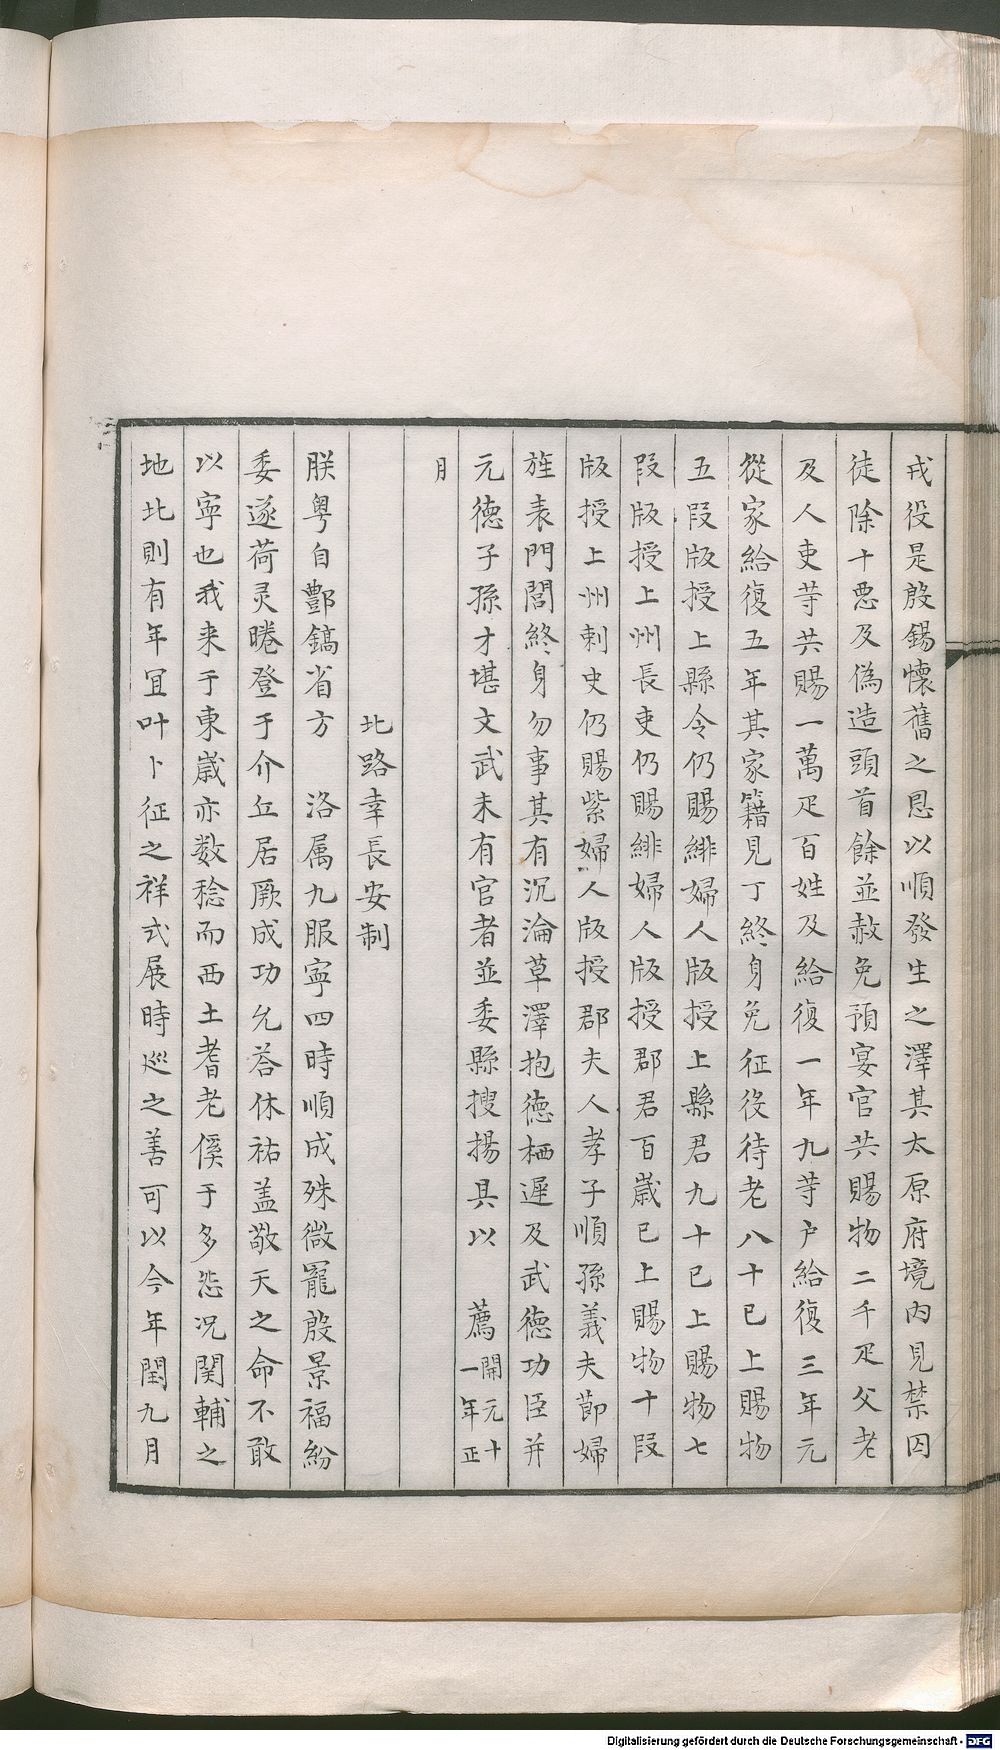 戎役是殷錫懷舊之恩以順發生之澤其太原府境内見禁囚
徒除十悪及偽造頭首餘並赦免預宴官共賜物二千疋父老
及人吏䓁共賜一萬疋百姓及給復一年九䓁户給復三年元
從家給復五年其家籍見丁終身免征役待老八十已上賜物
五叚版授上縣令仍賜緋婦人版授上縣君九十已上賜物七
叚版授上州長吏仍賜緋婦人版授郡君百歲已上賜物十叚
版授上州刺史仍賜紫婦人版授郡夫人孝子順孫義夫節婦
旌表門閭終身勿事其有沉淪草澤抱德栖遲及武德功臣并
元德子孫才堪文武未有官者並委縣搜揚具以　薦開元十一年正
月
北路幸長安制
朕粤自酆鎬省方　洛属九服寧四時順成殊微寵殷景福紛
委遂荷灵睠登于介丘居厥成功允荅休祐盖敬天之命不敢
以寧也我来于東歲亦数稔而西土耆老傒于多怸况関輔之
地北則有年宜叶卜征之祥式展時巡之善可以今年閏九月
Digitalisierung gefördert durch die Deutsche Forschungsgemeinschaft - DFG